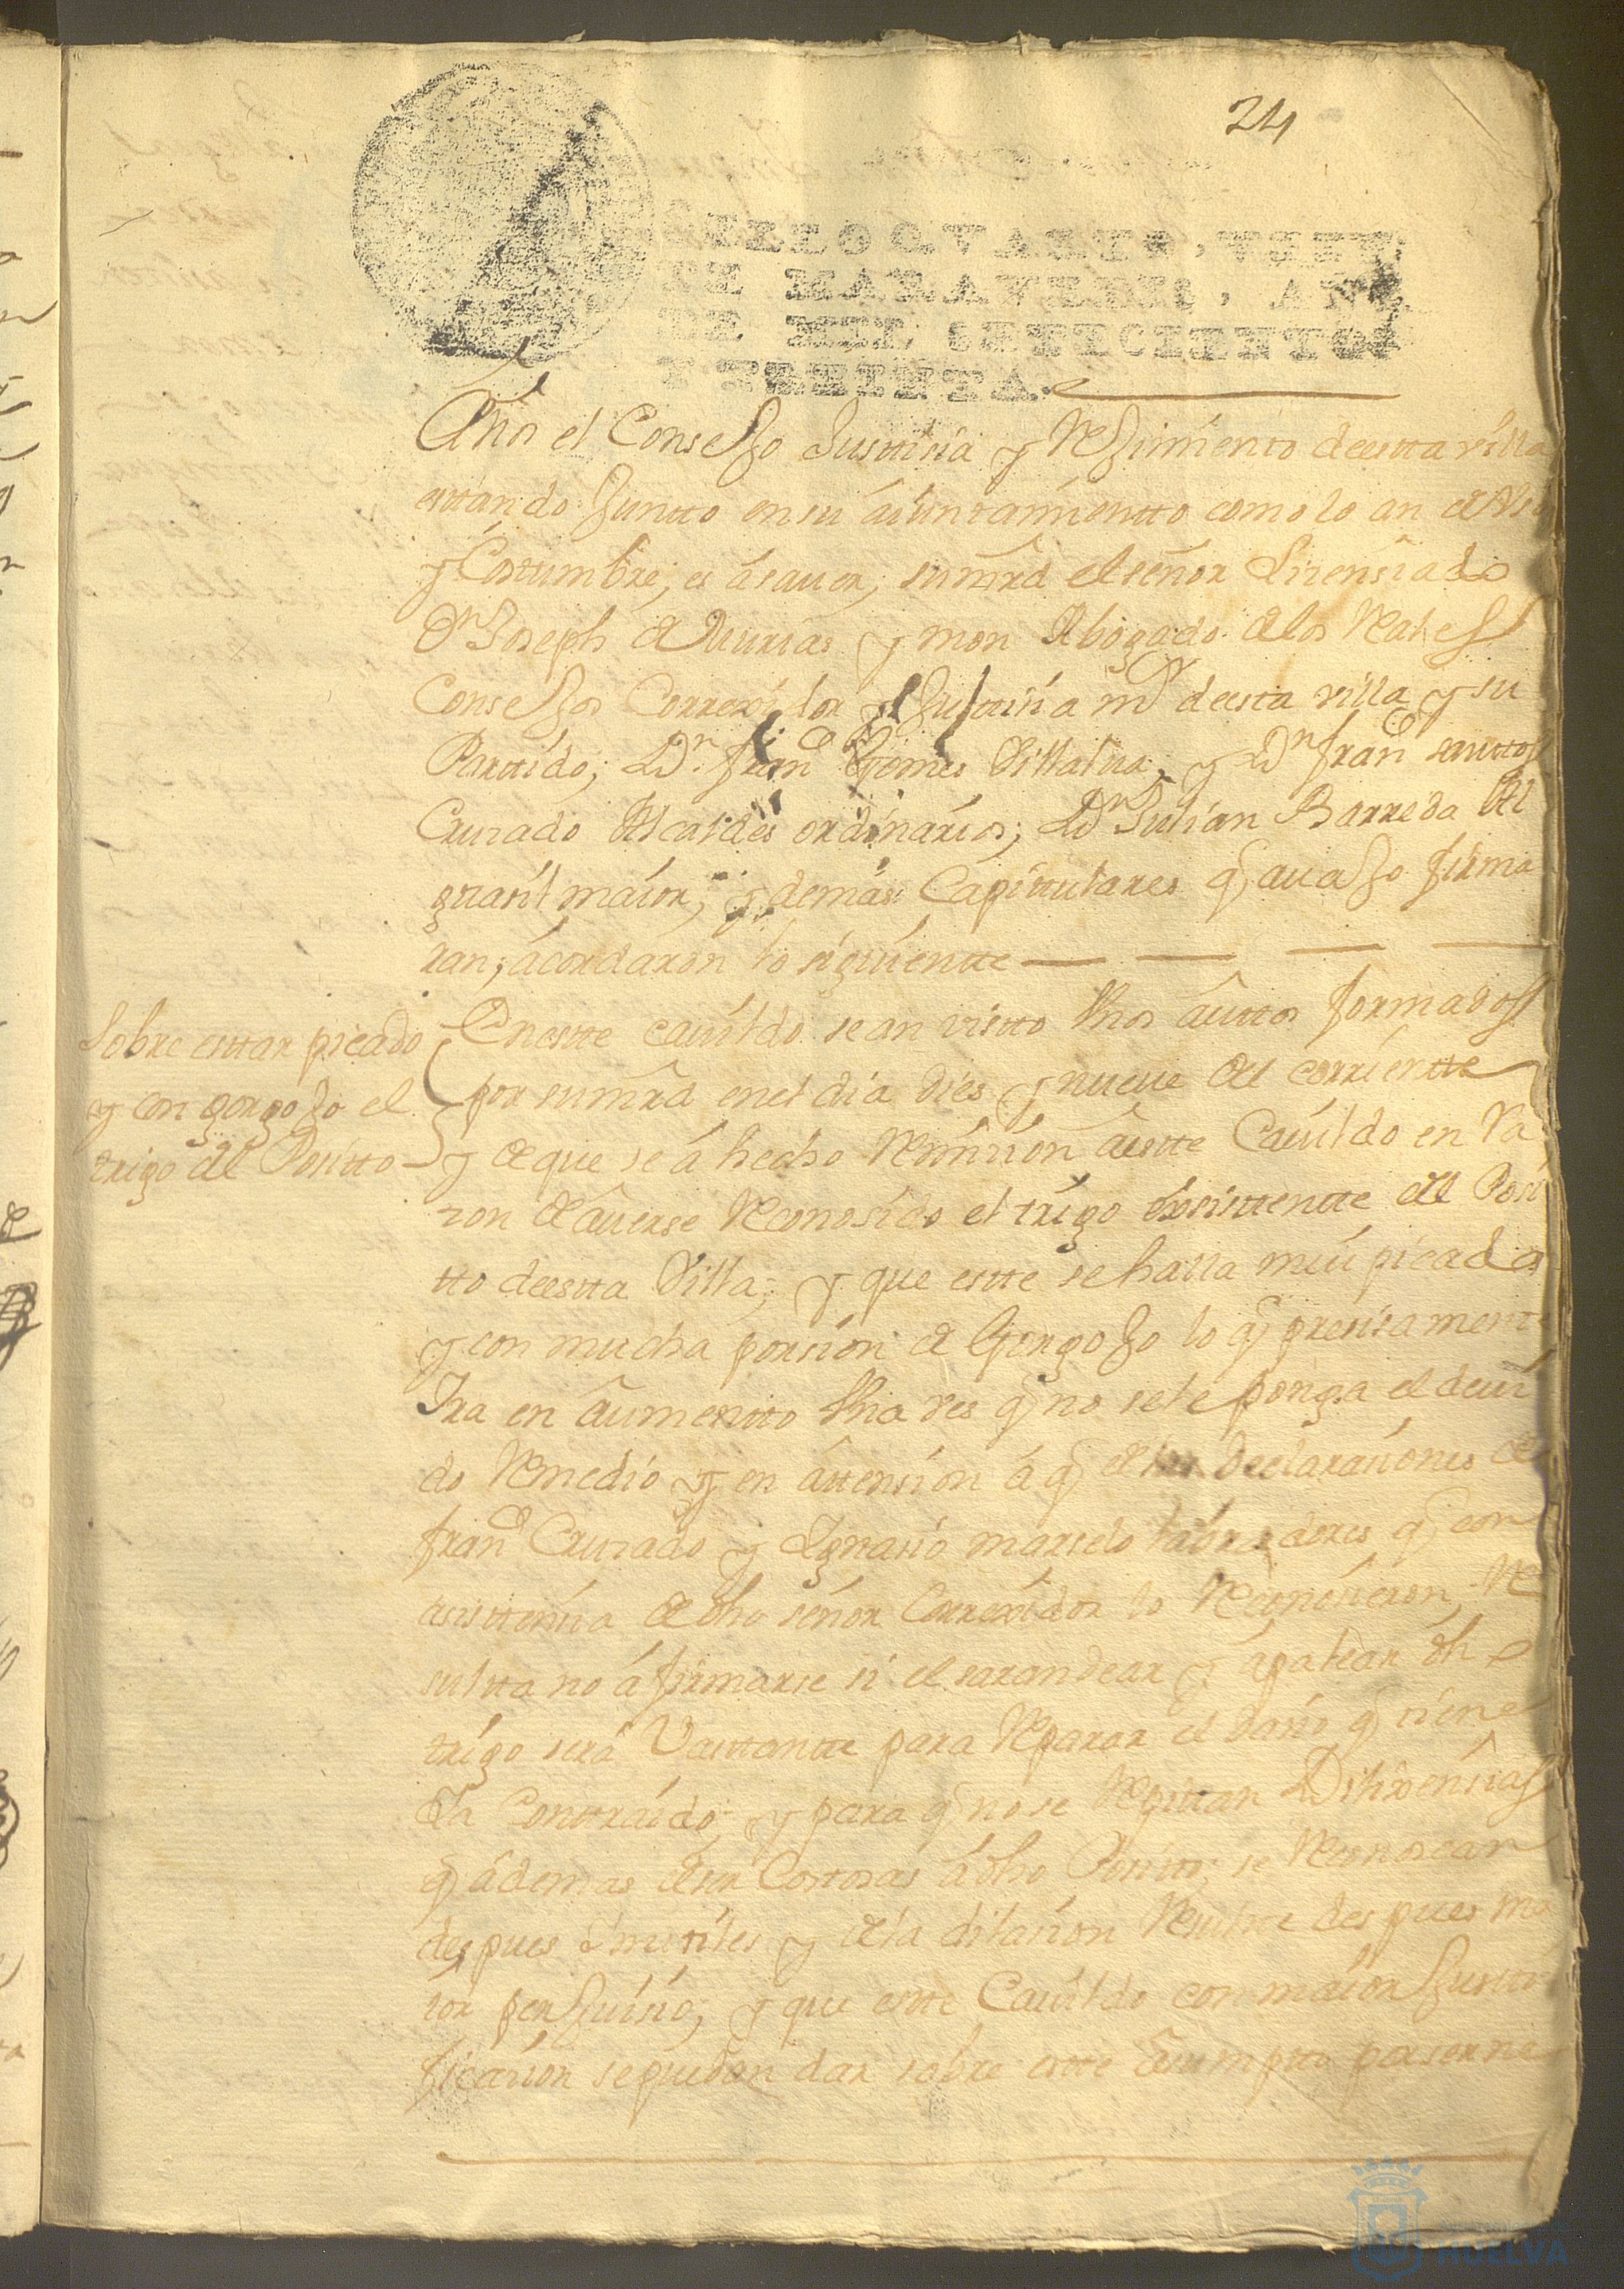 24
SELLO QVARTO, VEINT
DE MARAVEDIS, AÑO
DE MIL SETECIENTOS
Y TREINTA.
años el Consejo Justtisia y Rejimiento deestta villa
esttando Juntto en su aiuntamientto como lo an de Uso
y Costumbre, es a sauer, su mrd el señor Lisensiado
Dn Joseph de Murias y mon Abogado de los Reales
Consejos Correxidor y Justtisia mr deesta villa y su
Parttido; Dn Juan Gomes Villalua, y Dn franco santtos
Cruzado Alcaldes ordinarios; Dn Julian Barreda Al
guasil maior, y demas Capittulares q auajo firma
ran, acordaron lo siguientte
Sobre esttar picado
y con gorgojo el
trigo del Positto
En estte cauildo se an vistto thos auttos formados
por su mrd en el dia dies y nueue del corrientte
y de que se á hecho Remision a estte Cauildo en Ra
zon de auerse Reconosido el trigo exsisttentte del Posi
tto deestta Villa; y que estte se halla mui picado
y con mucha porsion de Gorgojo lo q presisament
Ira en aumentto tha ves q no se le ponga el deui
do Remedio y en attension á q de las declarasiones de
franco Cruzado y Ignasio marselo labradores q con
asisttensia de dho señor Correxidor lo Reconosieron, Re
sultta no afirmarse si el sarandear y apalear dho
trigo será Vasttantte para Reparar el daño q tiene
Ia Conttraido, y para q no se Repittan Dilixensias
q ademas de ser Costosas a dho Positto, se Reconoscan
despues inuttiles y de la dilasion Resultte despues ma
ior perjuisio; y que estte Cauildo con maior Justti
ficasion se puedan dar sobre estte asumptto